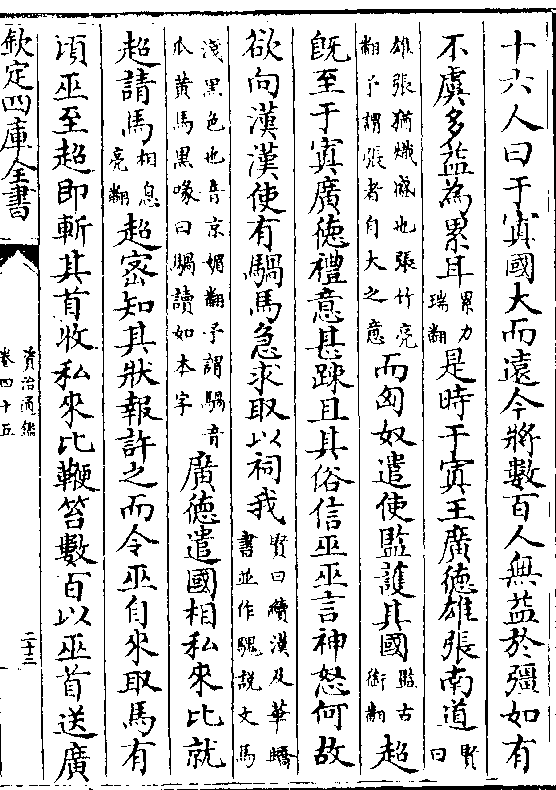 十六人曰于窴國大而遠今將數百人無益於彊如有
不虞多益為累耳累力瑞翻是時于窴王廣德雄張南道賢曰
雄張猶熾盛也張竹亮翻予謂張者自大之意而匈奴遣使監護其國監古銜翻超
旣至于窴廣德禮意甚踈且其俗信巫巫言神怒何故
欲向漢漢使有騧馬急求取以祠我賢曰續漢及華嶠書並作騩説文馬
淺黑色也音京媚翻予謂騧音瓜黄馬黑喙曰騧讀如本字廣德遣國相私來比就
超請馬相息亮翻超密知其狀報許之而令巫自來取馬有
頃巫至超即斬其首收私來比鞭笞數百以巫首送廣
欽定四庫全書
資治通鑑
卷四十五
二十三